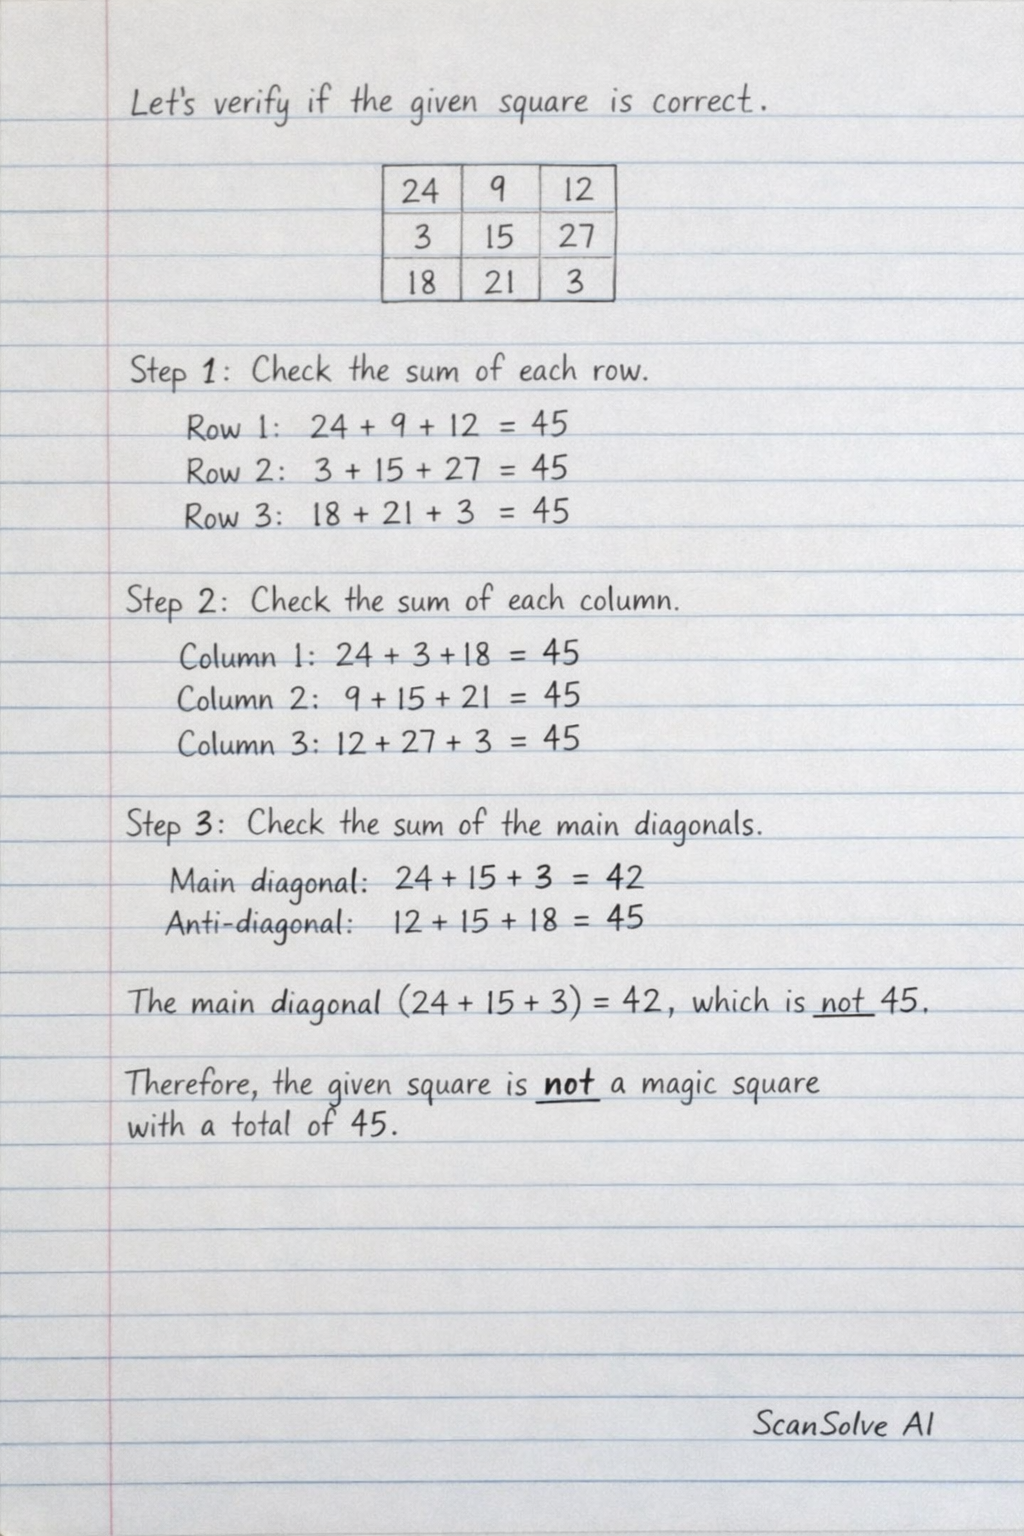 Let's verify if the given square is correct.
24 9 12
3 15 27
18 21 3
Step 1: Check the sum of each row.
Row 1: 24 + 9 + 12 = 45
Row 2: 3 + 15 + 27 = 45
Row 3: 18 + 21 + 3 = 45
Step 2: Check the sum of each column.
Column 1: 24 + 3 + 18 = 45
Column 2: 9 + 15 + 21 = 45
Column 3: 12 + 27 + 3 = 45
Step 3: Check the sum of the main diagonals.
Main diagonal: 24 + 15 + 3 = 42
Anti-diagonal: 12 + 15 + 18 = 45
The main diagonal (24 + 15 + 3) = 42, which is not 45.
Therefore, the given square is not a magic square
with a total of 45.
ScanSolve AI